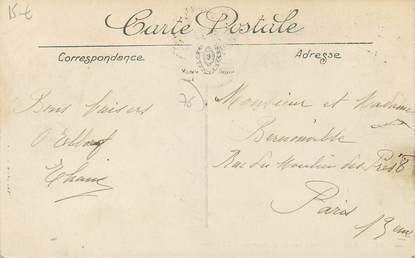 15 €
Carte Postale
Correspondance
Adresse
Bons baisers
d'Elbeuf
Monsieur et Madame
Bernonville
Rue du Moulin des Prés 8
Paris
13 eme